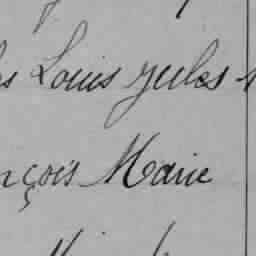 Louis Jules
nçois Marie